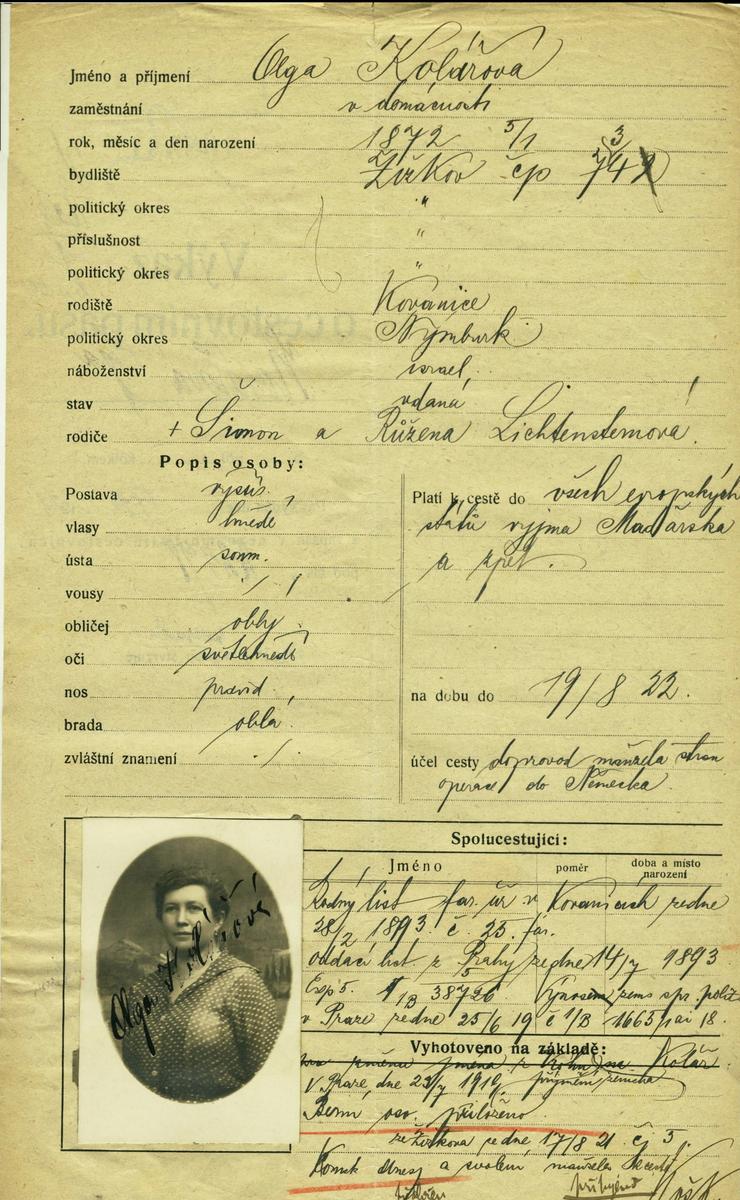 Jméno a příjmení Olga Kolářová
zaměstnání v domácnosti
rok, měsíc a den narození 1872 5/1
bydliště Žižkov čp 743
politický okres "
příslušnost "
politický okres "
rodiště Kovanice
politický okres Nymburk
náboženství israel.
stav vdaná
rodiče + Šimon a Růžena Lichtensternová
Popis osoby:
Postava
vlasy hnědé
ústa soum.
vousy ./.
obličej oblý
oči světlehnědé
nos pravid.
brada oblá
zvláštní znamení ./.
Platí k cestě do všech evropských
států vyjma Maďarska
a zpět.
na dobu do 19/8 22.
účel cesty doprovod manžela stran
operace do Německa.
Spolucestující:
Jméno poměr doba a místo
narození
Rodný list far. úř. v Kovanicích ze dne
28/2 1893 č. 25. far.
oddací list z Prahy ze dne 14/7 1893
38726 výnosem zems. spr. polit
v Praze ze dne 25/6 19 č 1/B 1665 18.
Vyhotoveno na základě:
změnu jména z Kohn na Kolář.
V Praze, dne 1919
přiloženo
ze Žižkova ze dne 17/8 21 č 3.
a svolení manžela
Olga Kolářová